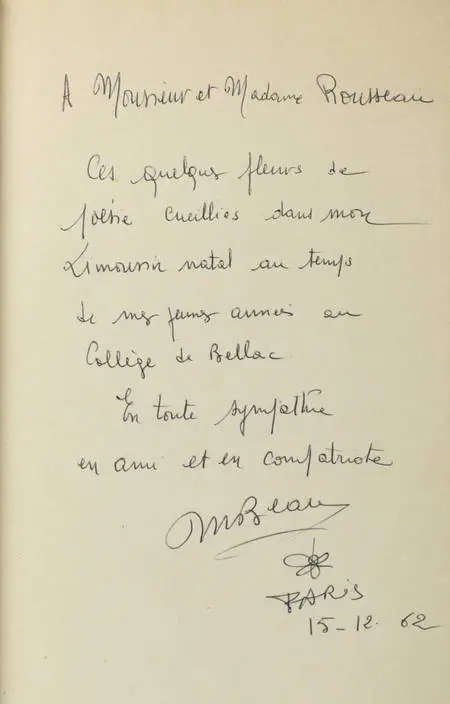 A Monsieur et Madame Rousseau
Ces quelques fleurs de
poésie cueillies dans mon
Limousin natal au temps
de mes jeunes années au
Collège de Bellac.
En toute sympathie
en ami et en compatriote
MBeau
PARIS
15-12-62